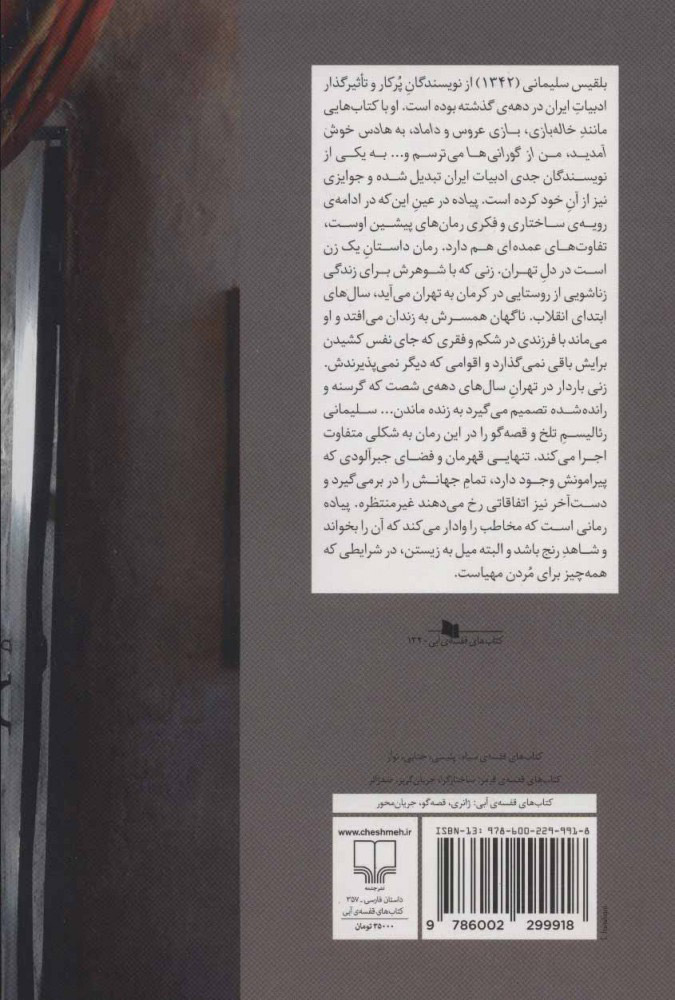 بلقیس سلیمانی (۱۳۴۲) از نویسندگانِ پُرکار و تأثیرگذار
ادبیاتِ ایران در دهه‌ی گذشته بوده است. او با کتاب‌هایی
مانندِ خاله‌بازی، بازی عروس و داماد، به هادس خوش
آمدید، من از گورانی‌ها می‌ترسم و... به یکی از
نویسندگان جدی ادبیات ایران تبدیل شده و جوایزی
نیز از آنِ خود کرده است. پیاده در عینِ این‌که در ادامه‌ی
رویه‌ی ساختاری و فکری رمان‌های پیشین اوست،
تفاوت‌های عمده‌ای هم دارد. رمان داستانِ یک زن
است در دلِ تهران. زنی که با شوهرش برای زندگی
زناشویی از روستایی در کرمان به تهران می‌آید، سال‌های
ابتدای انقلاب. ناگهان همسرش به زندان می‌افتد و او
می‌ماند با فرزندی در شکم و فقری که جای نفس کشیدن
برایش باقی نمی‌گذارد و اقوامی که دیگر نمی‌پذیرندش.
زنی باردار در تهرانِ سال‌های دهه‌ی شصت که گرسنه و
رانده‌شده تصمیم می‌گیرد به زنده ماندن... سلیمانی
رئالیسمِ تلخ و قصه‌گو را در این رمان به شکلی متفاوت
اجرا می‌کند. تنهایی قهرمان و فضای جبرآلودی که
پیرامونش وجود دارد، تمامِ جهانش را در برمی‌گیرد و
دستِ‌آخر نیز اتفاقاتی رخ می‌دهند غیرمنتظره. پیاده
رمانی است که مخاطب را وادار می‌کند که آن را بخواند
و شاهدِ رنج باشد و البته میل به زیستن، در شرایطی که
همه‌چیز برای مُردن مهیاست.
کتاب‌های قفسه‌ی آبی
کتاب‌های قفسه‌ی سیاه: پلیسی، جنایی، نوآر
کتاب‌های قفسه‌ی قرمز: ساختارگرا، جریان‌گریز، ضدژانر
کتاب‌های قفسه‌ی آبی: ژانری، قصه‌گو، جریان‌محور
www.cheshmeh.ir
نشرچشمه
داستان فارسی - ۳۵۷
کتاب‌های قفسه‌ی آبی
۲۵۰۰۰ تومان
ISBN-13: 978-600-229-991-8
9 786002 299918